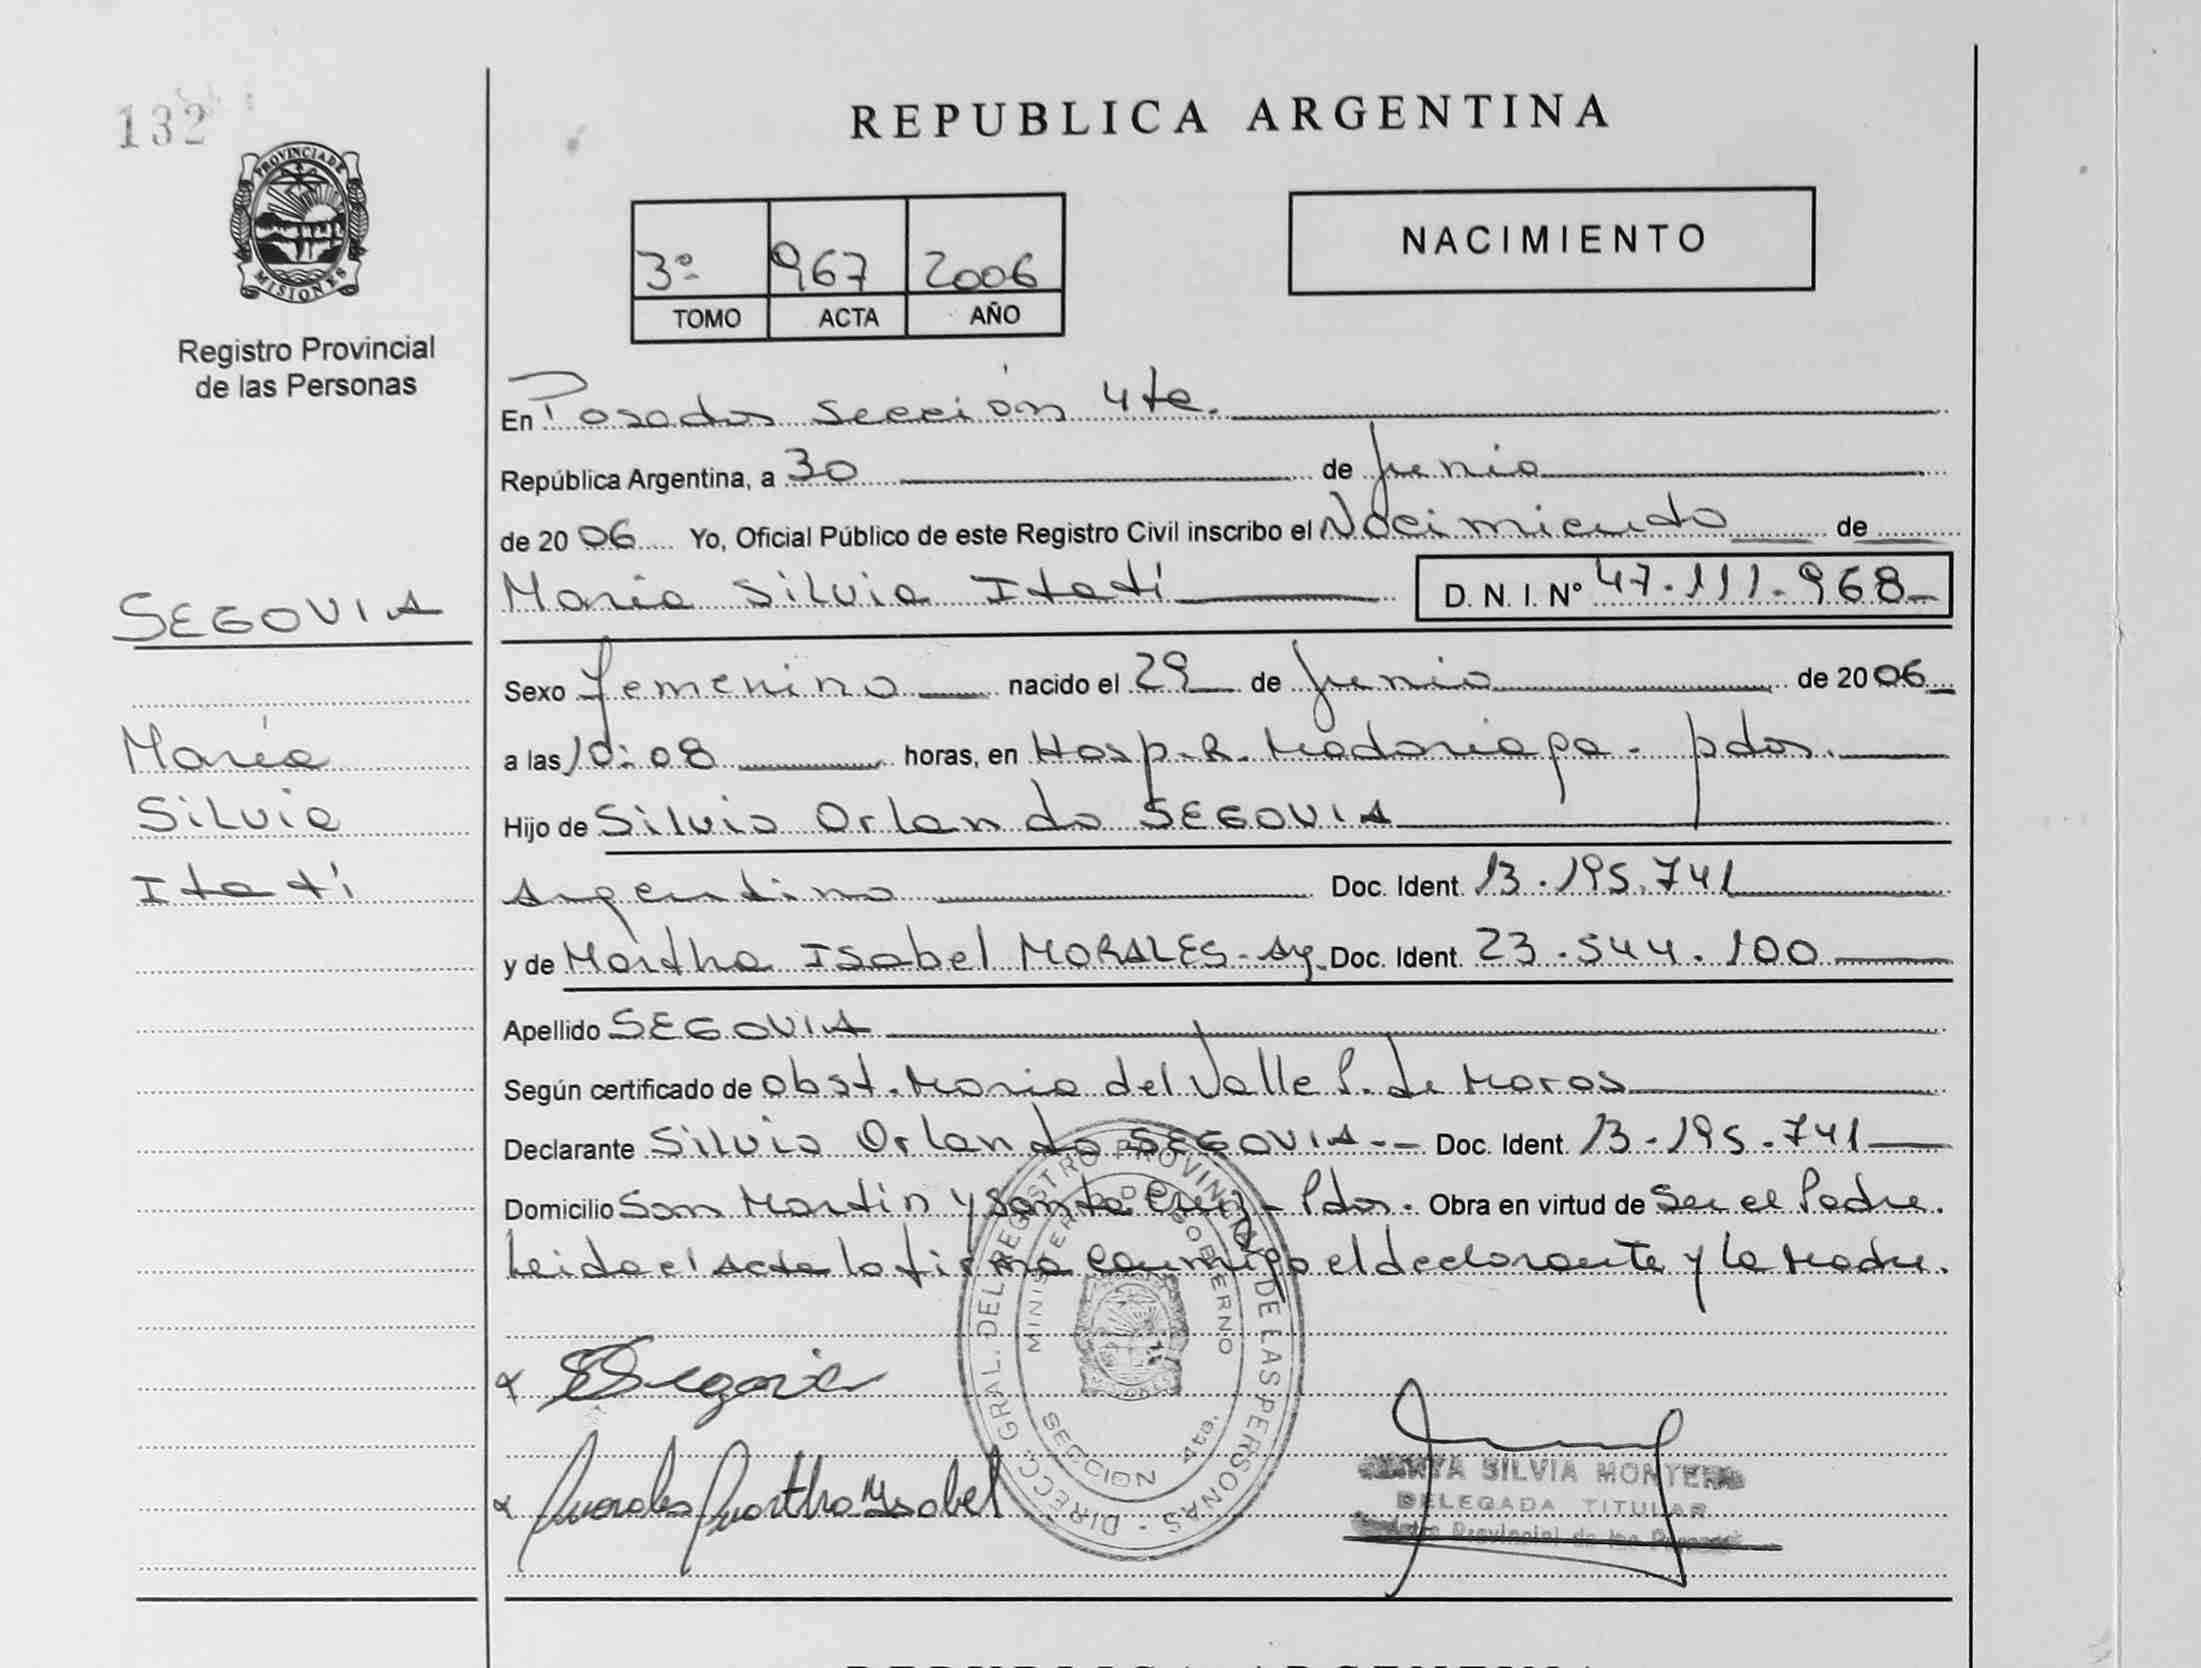 132
PROVINCIA DE
MISIONES
Registro Provincial
de las Personas
REPUBLICA ARGENTINA
3º 967 2006
TOMO ACTA AÑO
NACIMIENTO
En Posadas Sección 4ta.
República Argentina, a 30 de Junio
de 2006 Yo, Oficial Público de este Registro Civil inscribo el Nacimiento de
SEGOVIA
María Silvia Itatí D. N. I. Nº 47.111.968
Sexo femenino nacido el 29 de Junio de 2006
María
a las 10:08 horas, en Hosp. R. Madariaga - pdas.
Silvia
Hijo de Silvio Orlando SEGOVIA
Itatí
Argentino Doc. Ident. 13.195.741
y de Martha Isabel MORALES - Ag. Doc. Ident. 23.544.100
Apellido SEGOVIA
Según certificado de obst. Maria del Valle P. de Moras
Declarante Silvio Orlando SEGOVIA -- Doc. Ident. 13-195-741
Domicilio San Martín y Santa Cruz - Pdas. Obra en virtud de Ser el Padre.
Leida el Acta la firma conmigo el declarante y la Madre.
DIRECC. GRAL. DEL REGISTRO PROVINCIAL DE LAS PERSONAS
MINISTERIO DE GOBIERNO
SECCION 4ta.
Segovia
Morales Martha Isabel
SILVIA MONTERO
DELEGADA TITULAR
Provincial de las Personas
REPUBLICA ARGENTINA